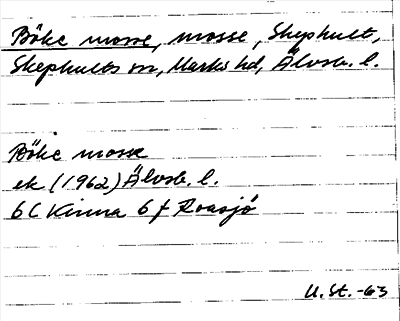 Böke mosse, mosse, Skephult,
Skephults sn, Marks hd, Älvsb. l.
Böke mosse
ek (1962) Älvsb. l.
6C Kinna 6 f Roasjö
U. St. -63